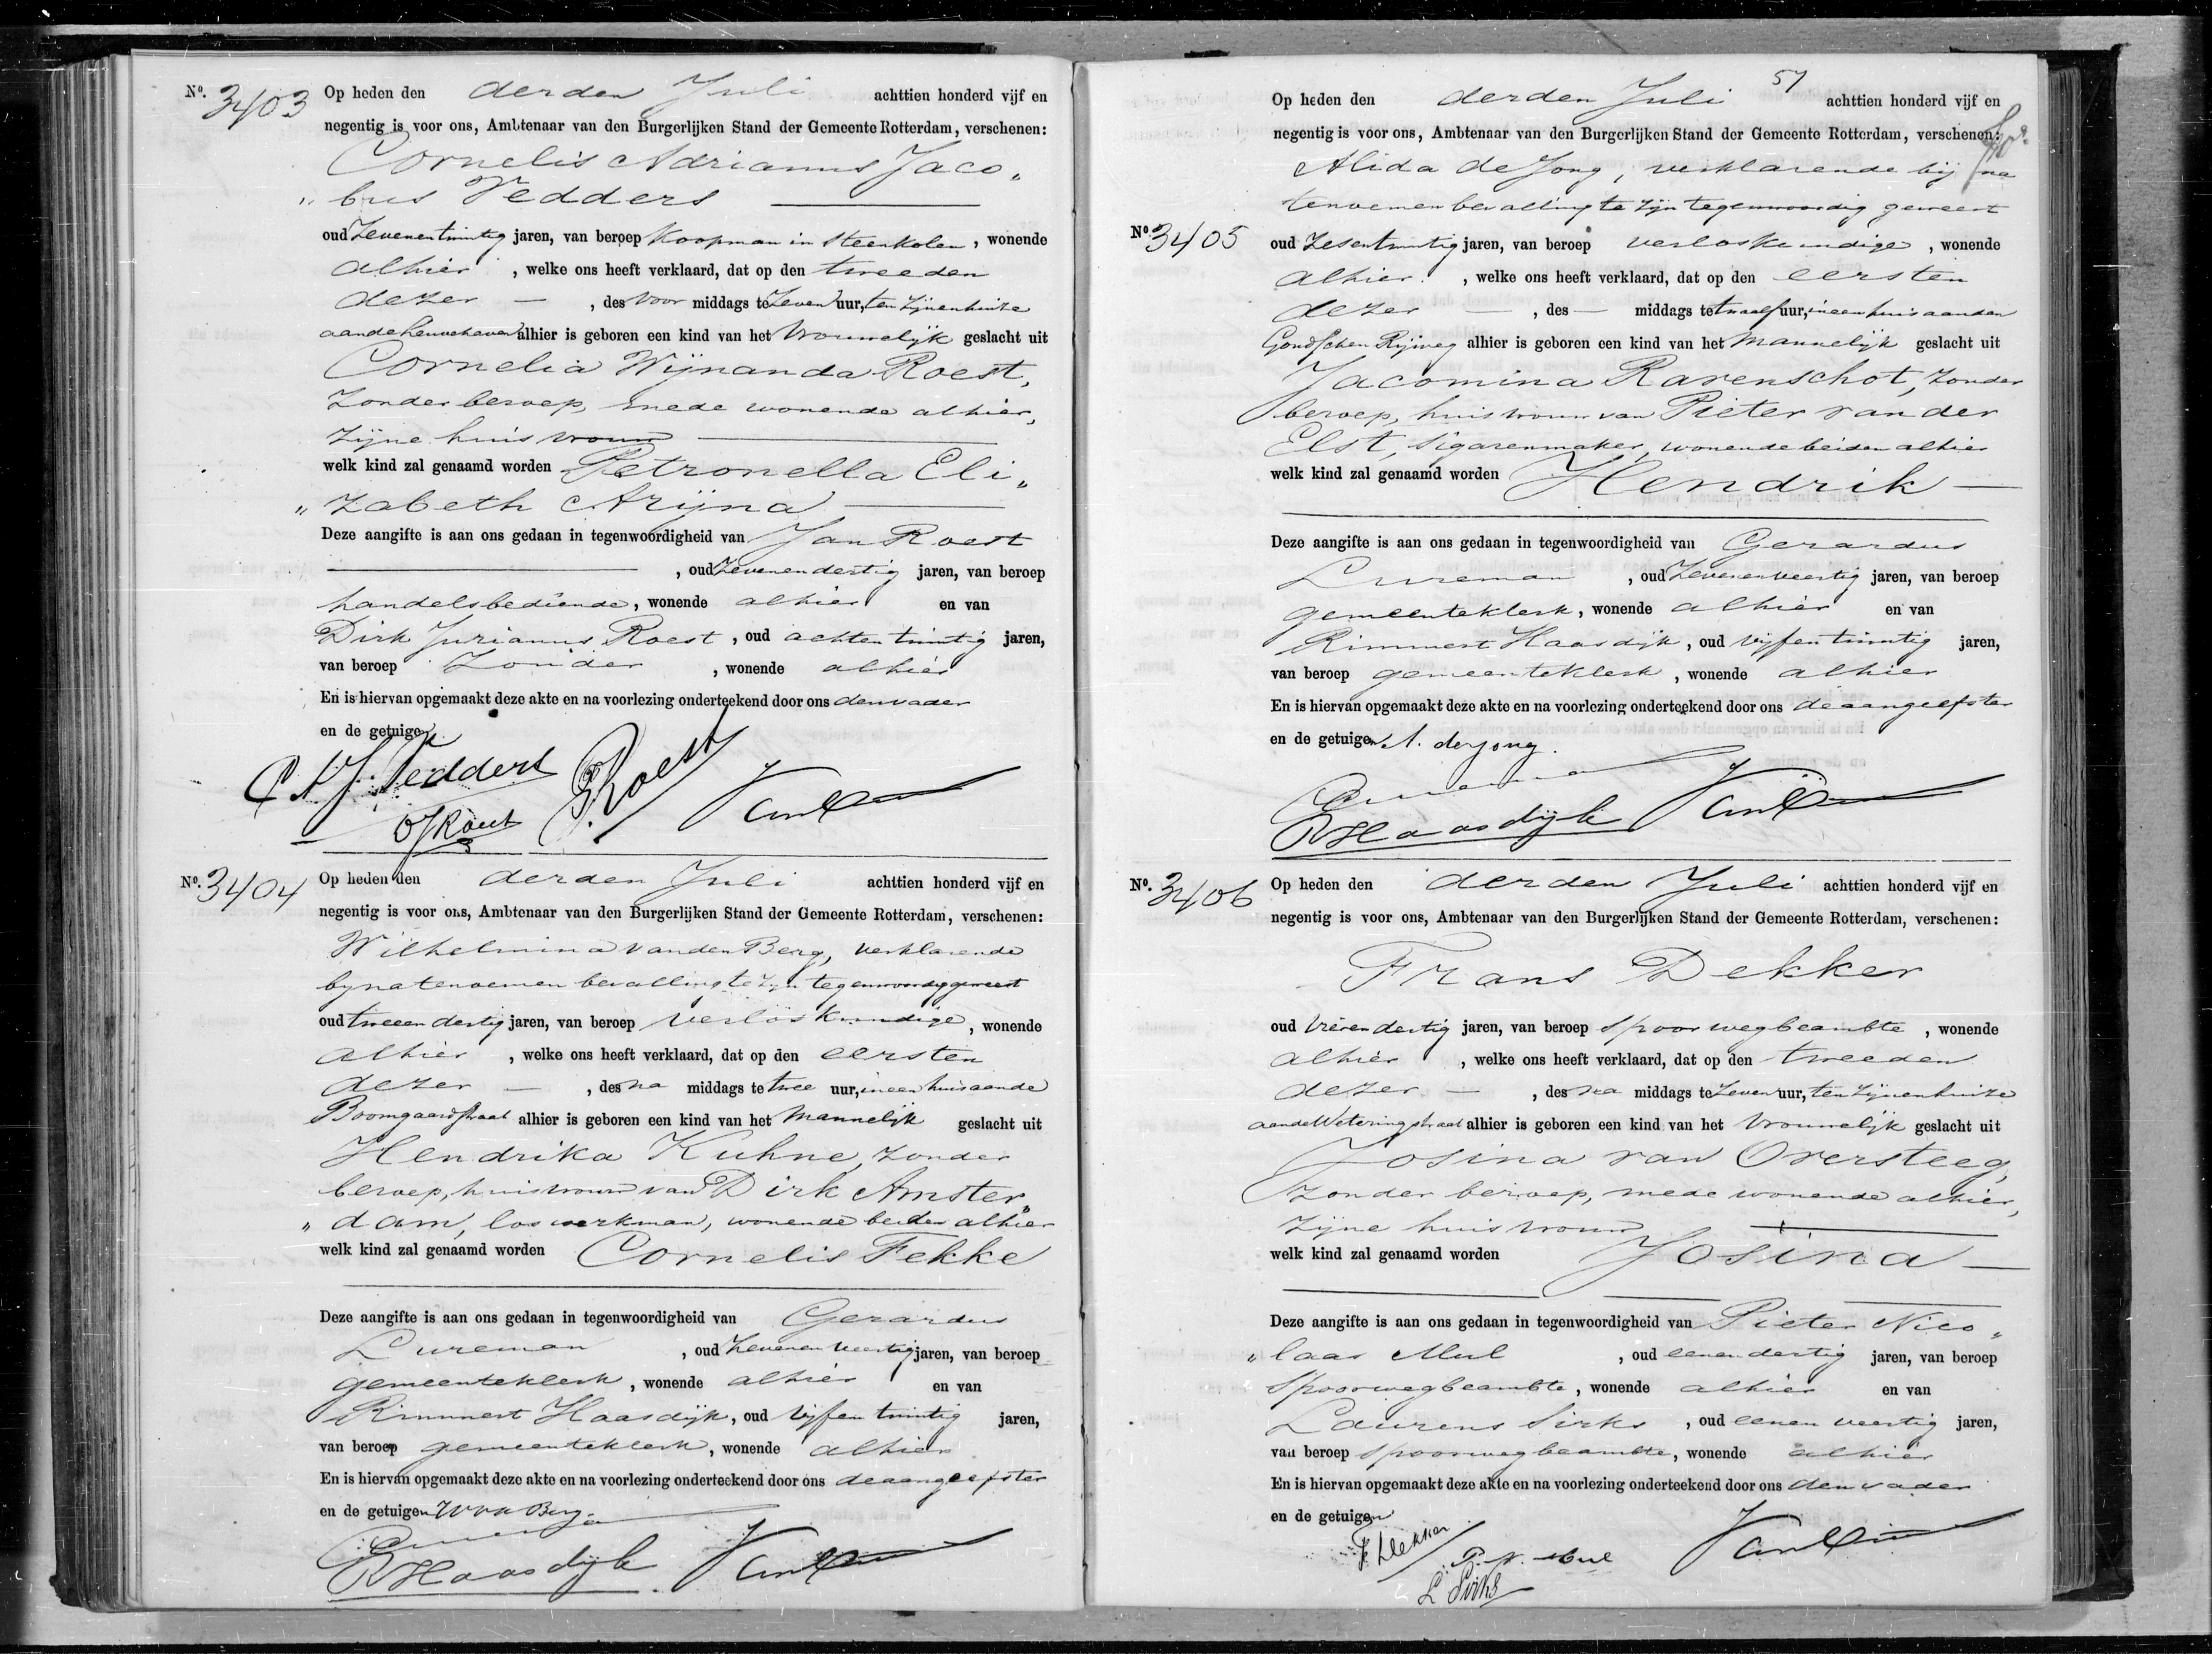 Nº. 3403 Op heden den derden Juli achttien honderd vijf en
negentig is voor ons, Ambtenaar van den Burgerlijken Stand der Gemeente Rotterdam, verschenen:
Cornelis Adrianus Jaco„
„bus Vedders
oud Zevenentwintig jaren, van beroep Koopman in Steenkolen, wonende
alhier, welke ons heeft verklaard, dat op den tweeden
dezer —, des voor middags te Zeven uur, ten zijnen huize
aan de Leuvehaven alhier is geboren een kind van het Vrouwelijk geslacht uit
Cornelia Wijnanda Roest,
zonder beroep, mede wonende alhier,
zijne huisvrouw
welk kind zal genaamd worden Petronella Eli„
„zabeth Arijna
Deze aangifte is aan ons gedaan in tegenwoordigheid van Jan Roest
, oud Zevenendertig jaren, van beroep
handelsbediende, wonende alhier en van
Dirk Jurianus Roest, oud achtentwintig jaren,
van beroep Zonder, wonende alhier
En is hiervan opgemaakt deze akte en na voorlezing onderteekend door ons den vader
en de getuigen
C A J Vedders
J Roest
Nº. 3404 Op heden den derden Juli achttien honderd vijf en
negentig is voor ons, Ambtenaar van den Burgerlijken Stand der Gemeente Rotterdam, verschenen:
Wilhelmina van den Berg, verklarende
bij na tenoemen bevalling te zijn tegenwoordig geweest
oud tweeendertig jaren, van beroep verloskundige, wonende
alhier, welke ons heeft verklaard, dat op den eersten
dezer —, des na middags te twee uur, in een huis aan de
Boomgaardstraat alhier is geboren een kind van het Mannelijk geslacht uit
Hendrika Kuhne, zonder
beroep, huisvrouw van Dirk Amster„
„dam, los werkman, wonende beiden alhier
welk kind zal genaamd worden Cornelis Fekke
Deze aangifte is aan ons gedaan in tegenwoordigheid van Gerardus
Lureman, oud Zevenenveertig jaren, van beroep
gemeenteklerk, wonende alhier en van
Rimmert Haasdijk, oud vijfentwintig jaren,
van beroep gemeenteklerk, wonende alhier
En is hiervan opgemaakt deze akte en na voorlezing onderteekend door ons de aangeefster
en de getuigen W v d Berg.
R Haasdijk
57
Op heden den derden Juli achttien honderd vijf en
negentig is voor ons, Ambtenaar van den Burgerlijken Stand der Gemeente Rotterdam, verschenen:
Alida de Jong, verklarende bij na
tenoemen bevalling te zijn tegenwoordig geweest
Nº. 3405 oud Zesentwintig jaren, van beroep verloskundige, wonende
alhier, welke ons heeft verklaard, dat op den eersten
dezer —, des — middags te twaalf uur, in een huis aan den
Goudschen Rijweg alhier is geboren een kind van het Mannelijk geslacht uit
Jacomina Ravenschot, zonder
beroep, huisvrouw van Pieter van der
Elst, Sigarenmaker, wonende beiden alhier
welk kind zal genaamd worden Hendrik —
Deze aangifte is aan ons gedaan in tegenwoordigheid van Gerardus
Lureman, oud Zevenenveertig jaren, van beroep
gemeenteklerk, wonende alhier en van
Rimmert Haasdijk, oud vijfentwintig jaren,
van beroep gemeenteklerk, wonende alhier
En is hiervan opgemaakt deze akte en na voorlezing onderteekend door ons de aangeefster
en de getuigen A. de Jong.
R Haasdijk
Nº. 3406 Op heden den derden Juli achttien honderd vijf en
negentig is voor ons, Ambtenaar van den Burgerlijken Stand der Gemeente Rotterdam, verschenen:
Frans Dekker
oud vierendertig jaren, van beroep Spoorwegbeambte, wonende
alhier, welke ons heeft verklaard, dat op den tweeden
dezer —, des na middags te Zeven uur, ten zijnen huize
aan de Weteringstraat alhier is geboren een kind van het Vrouwelijk geslacht uit
Josina van Oversteeg,
zonder beroep, mede wonende alhier,
zijne huisvrouw
welk kind zal genaamd worden Josina —
Deze aangifte is aan ons gedaan in tegenwoordigheid van Pieter Nico„
„laas Mul, oud eenendertig jaren, van beroep
Spoorwegbeambte, wonende alhier en van
Laurens Sirks, oud eenenveertig jaren,
van beroep Spoorwegbeambte, wonende alhier
En is hiervan opgemaakt deze akte en na voorlezing onderteekend door ons den vader
en de getuigen
F Dekker
P. N. Mul
L Sirks